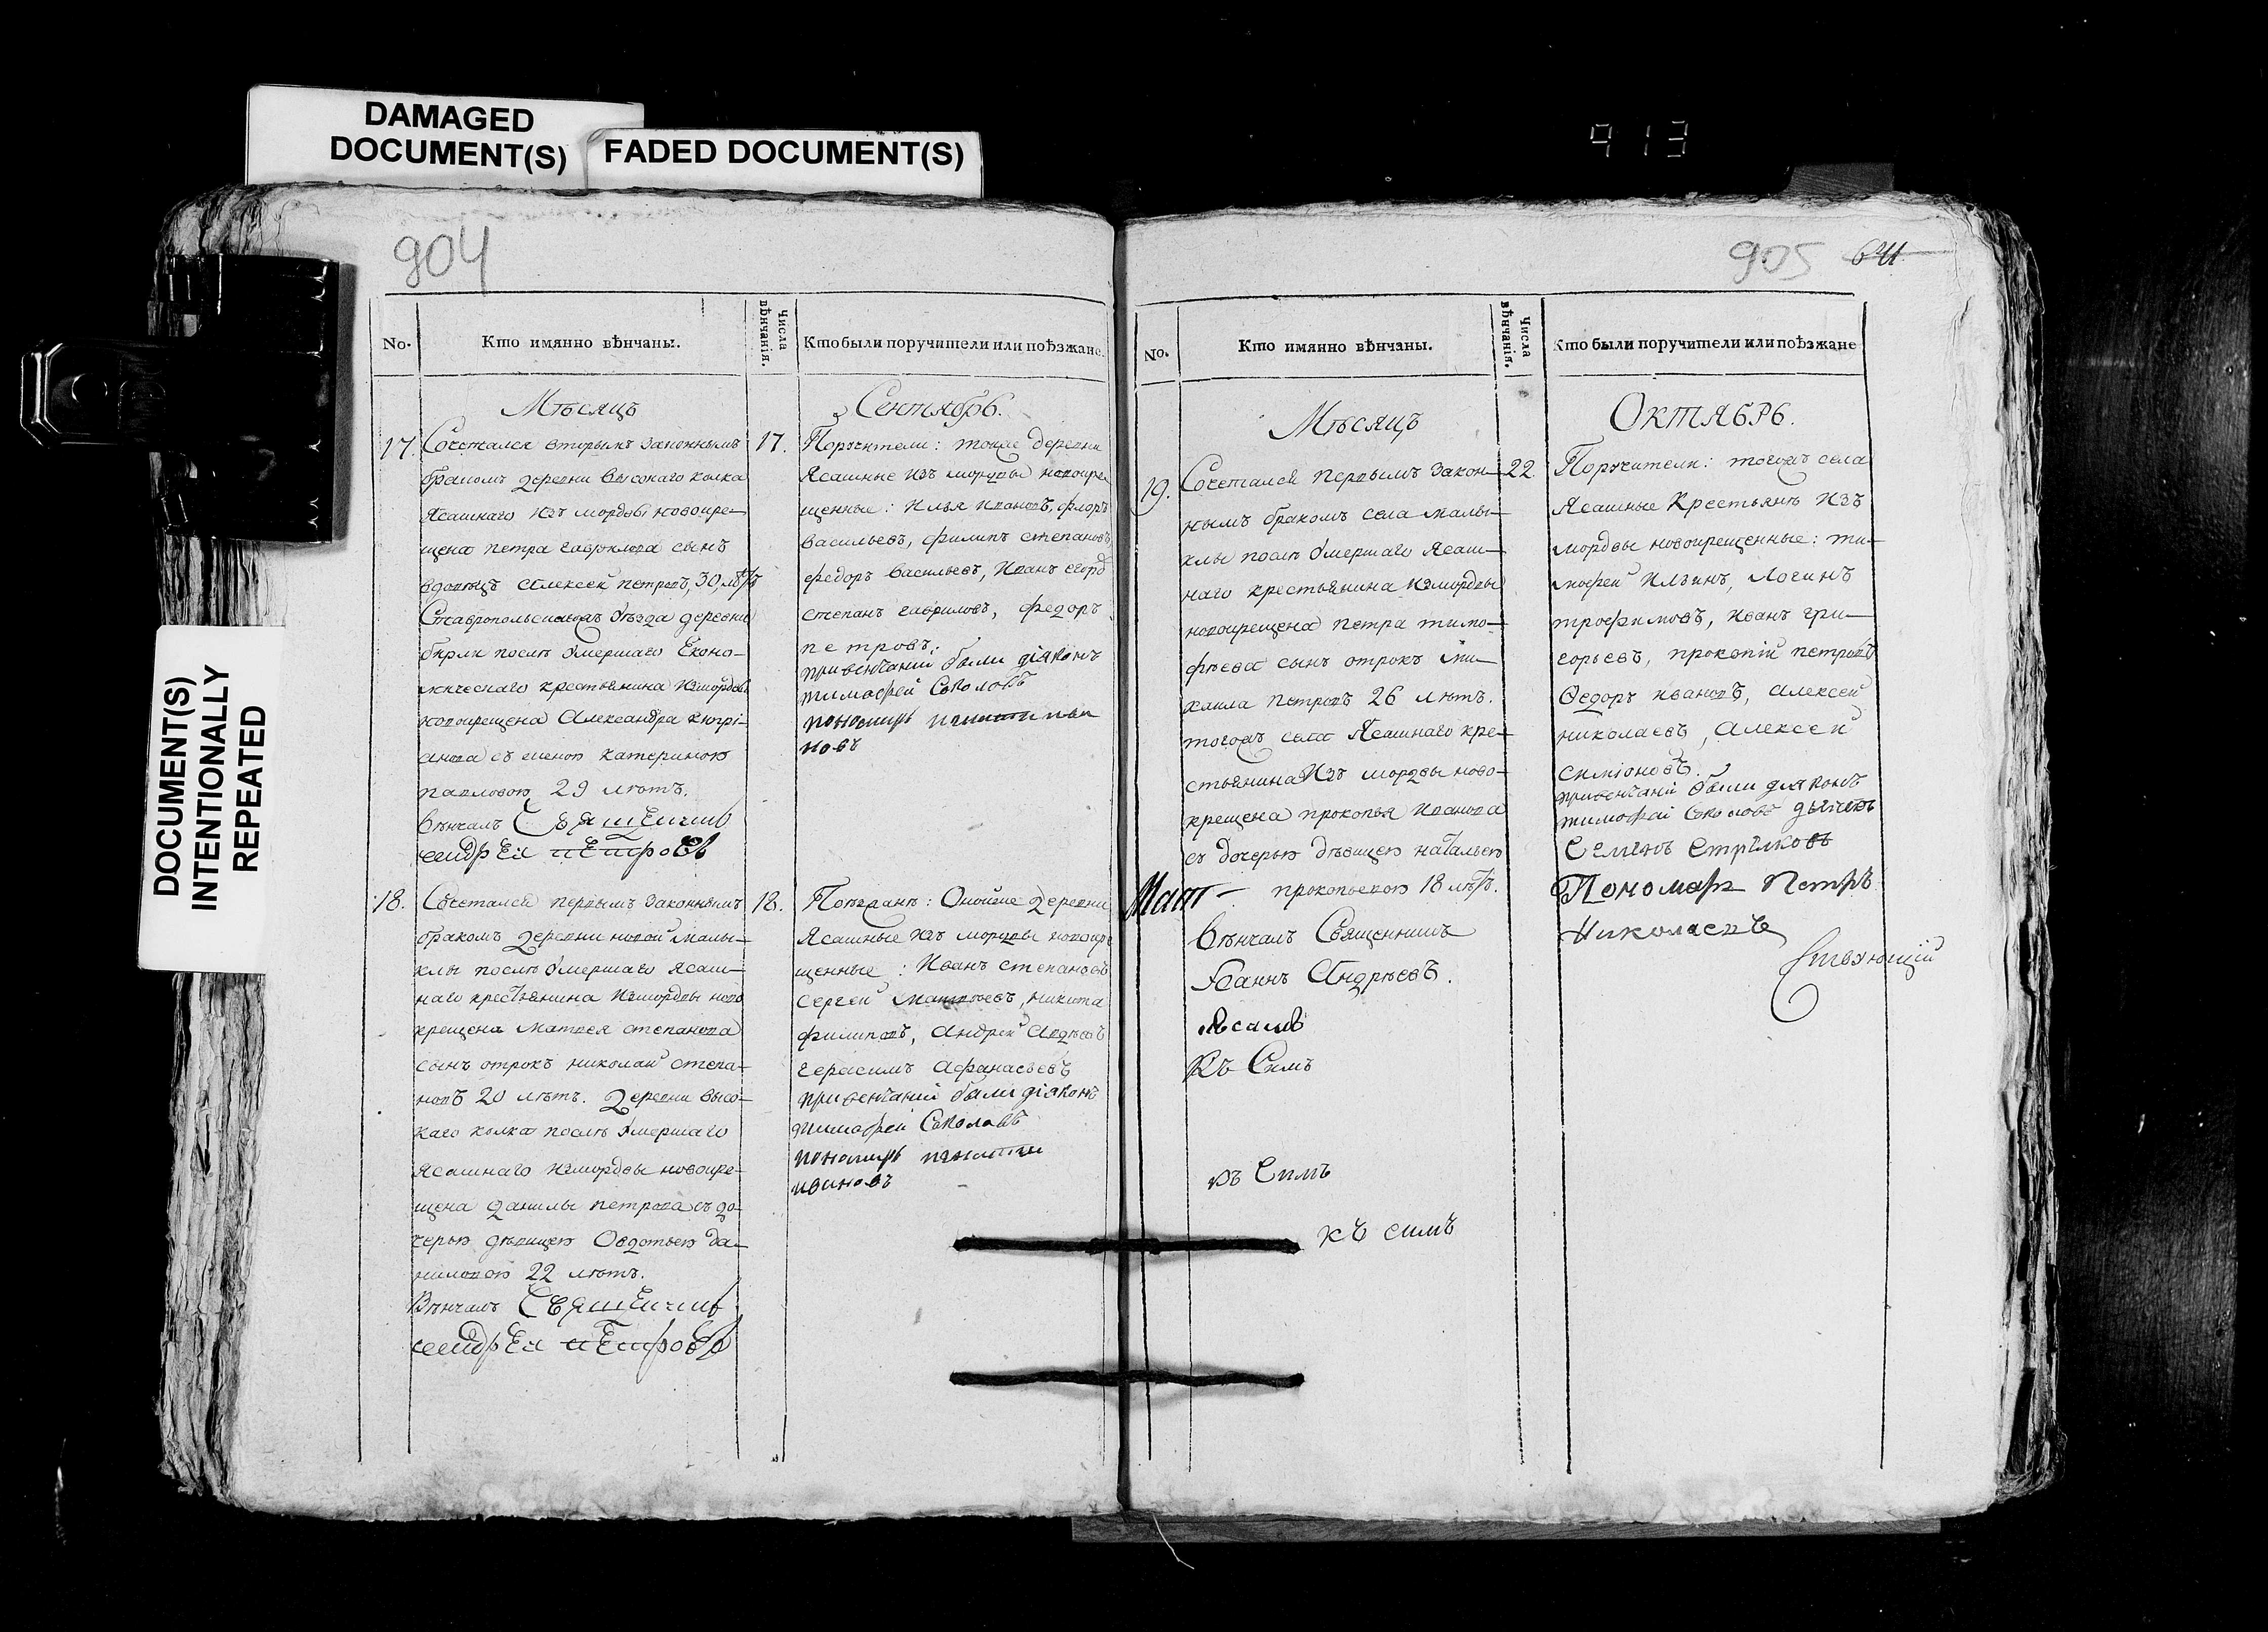 DAMAGED
DOCUMENT(S)
FADED DOCUMENT(S)
DOCUMENT(S)
INTENTIONALLY
REPEATED
913
904
No.
Кто имянно вѣнчаны.
Числа вѣнчанія.
Кто были поручители или поѣзжане.
Мѣсяцъ
Сентябрь.
17.
Сочетался вторымъ законнымъ
бракомъ деревни высокаго колка
Ясашнаго изъ мордвы новокре-
щена петра гаврилова сынъ
вдовецъ алексей петровъ, 30, лѣтъ
Ставропольскагожъ уѣзда деревни
бирли послѣ умершаго Еконо-
мическаго крестьянина измордвы
новокрещена Александра
с женою катериною
павловою 29 лѣтъ.
вѣнчалъ Священникъ
андрей петровъ
17.
Поручители: тоже деревни
Ясашные изъ мордвы новокре
щенные: Илья Ивановъ, флоръ
васильевъ, филипъ степановъ,
федоръ васильевъ, Иванъ
степанъ гавриловъ, федоръ
петровъ.
привенчаній были діяконъ
тимофей Соколовъ
пономарь
новъ
18.
Сочетался первымъ законнымъ
бракомъ деревни новой малы-
клы послѣ умершаго ясаш-
наго крестьянина измордвы ново
крещена матвея степанова
сынъ отрокъ николай степа-
новъ 20 лѣтъ. деревни высо-
каго колка послѣ умершаго
ясашнаго измордвы новокре-
щена данилы петрова съ до-
черью дѣвицею Овдотьею да-
ниловою 22 лѣтъ.
Вѣнчалъ Священникъ
андрей петровъ
18.
Поѣзжанѣ: Оной же деревни
Ясашные изъ мордвы новокре
щенные: Иванъ степановъ
сергей Матвеевъ, никита
филиповъ, Андрей Авдѣевъ
герасимъ Афанасьевъ
привенчаній были діяконъ
тимофей Соколовъ
пономарь
ивановъ
905
641
No.
Кто имянно вѣнчаны.
Числа вѣнчанія.
Кто были поручители или поѣзжане
Мѣсяцъ
Октябрь.
19.
Сочетался первымъ закон-
нымъ бракомъ села малы-
клы послѣ умершаго Ясаш-
наго крестьянина измордвы
новокрещена петра тимо-
фѣева сынъ отрокъ ми-
хаила петровъ 26 лѣтъ.
тогожъ села Ясашнаго кре-
стьянина Изъ мордвы ново-
крещена прокопья Иванова
съ дочерью дѣвицею натальею
прокопьевою 18 лѣтъ.
вѣнчалъ Священникъ
Іоаннъ Андрѣевъ.
Къ Симъ
къ Симъ
къ симъ
22.
Поручители: тогожъ села
Ясашные Крестьянѣ Изъ
мордвы новокрещенные: ти-
мофей Ильинъ, Логинъ
трофимовъ, иванъ гри-
горьевъ, прокопій петровъ
Ѳедоръ ивановъ, алексей
николаевъ, Алексей
симіоновъ.
привенчаній были діяконъ
тимофей Соколовъ дьячекъ
Семенъ Стрелковъ
Пономарь Петръ
Николаевъ